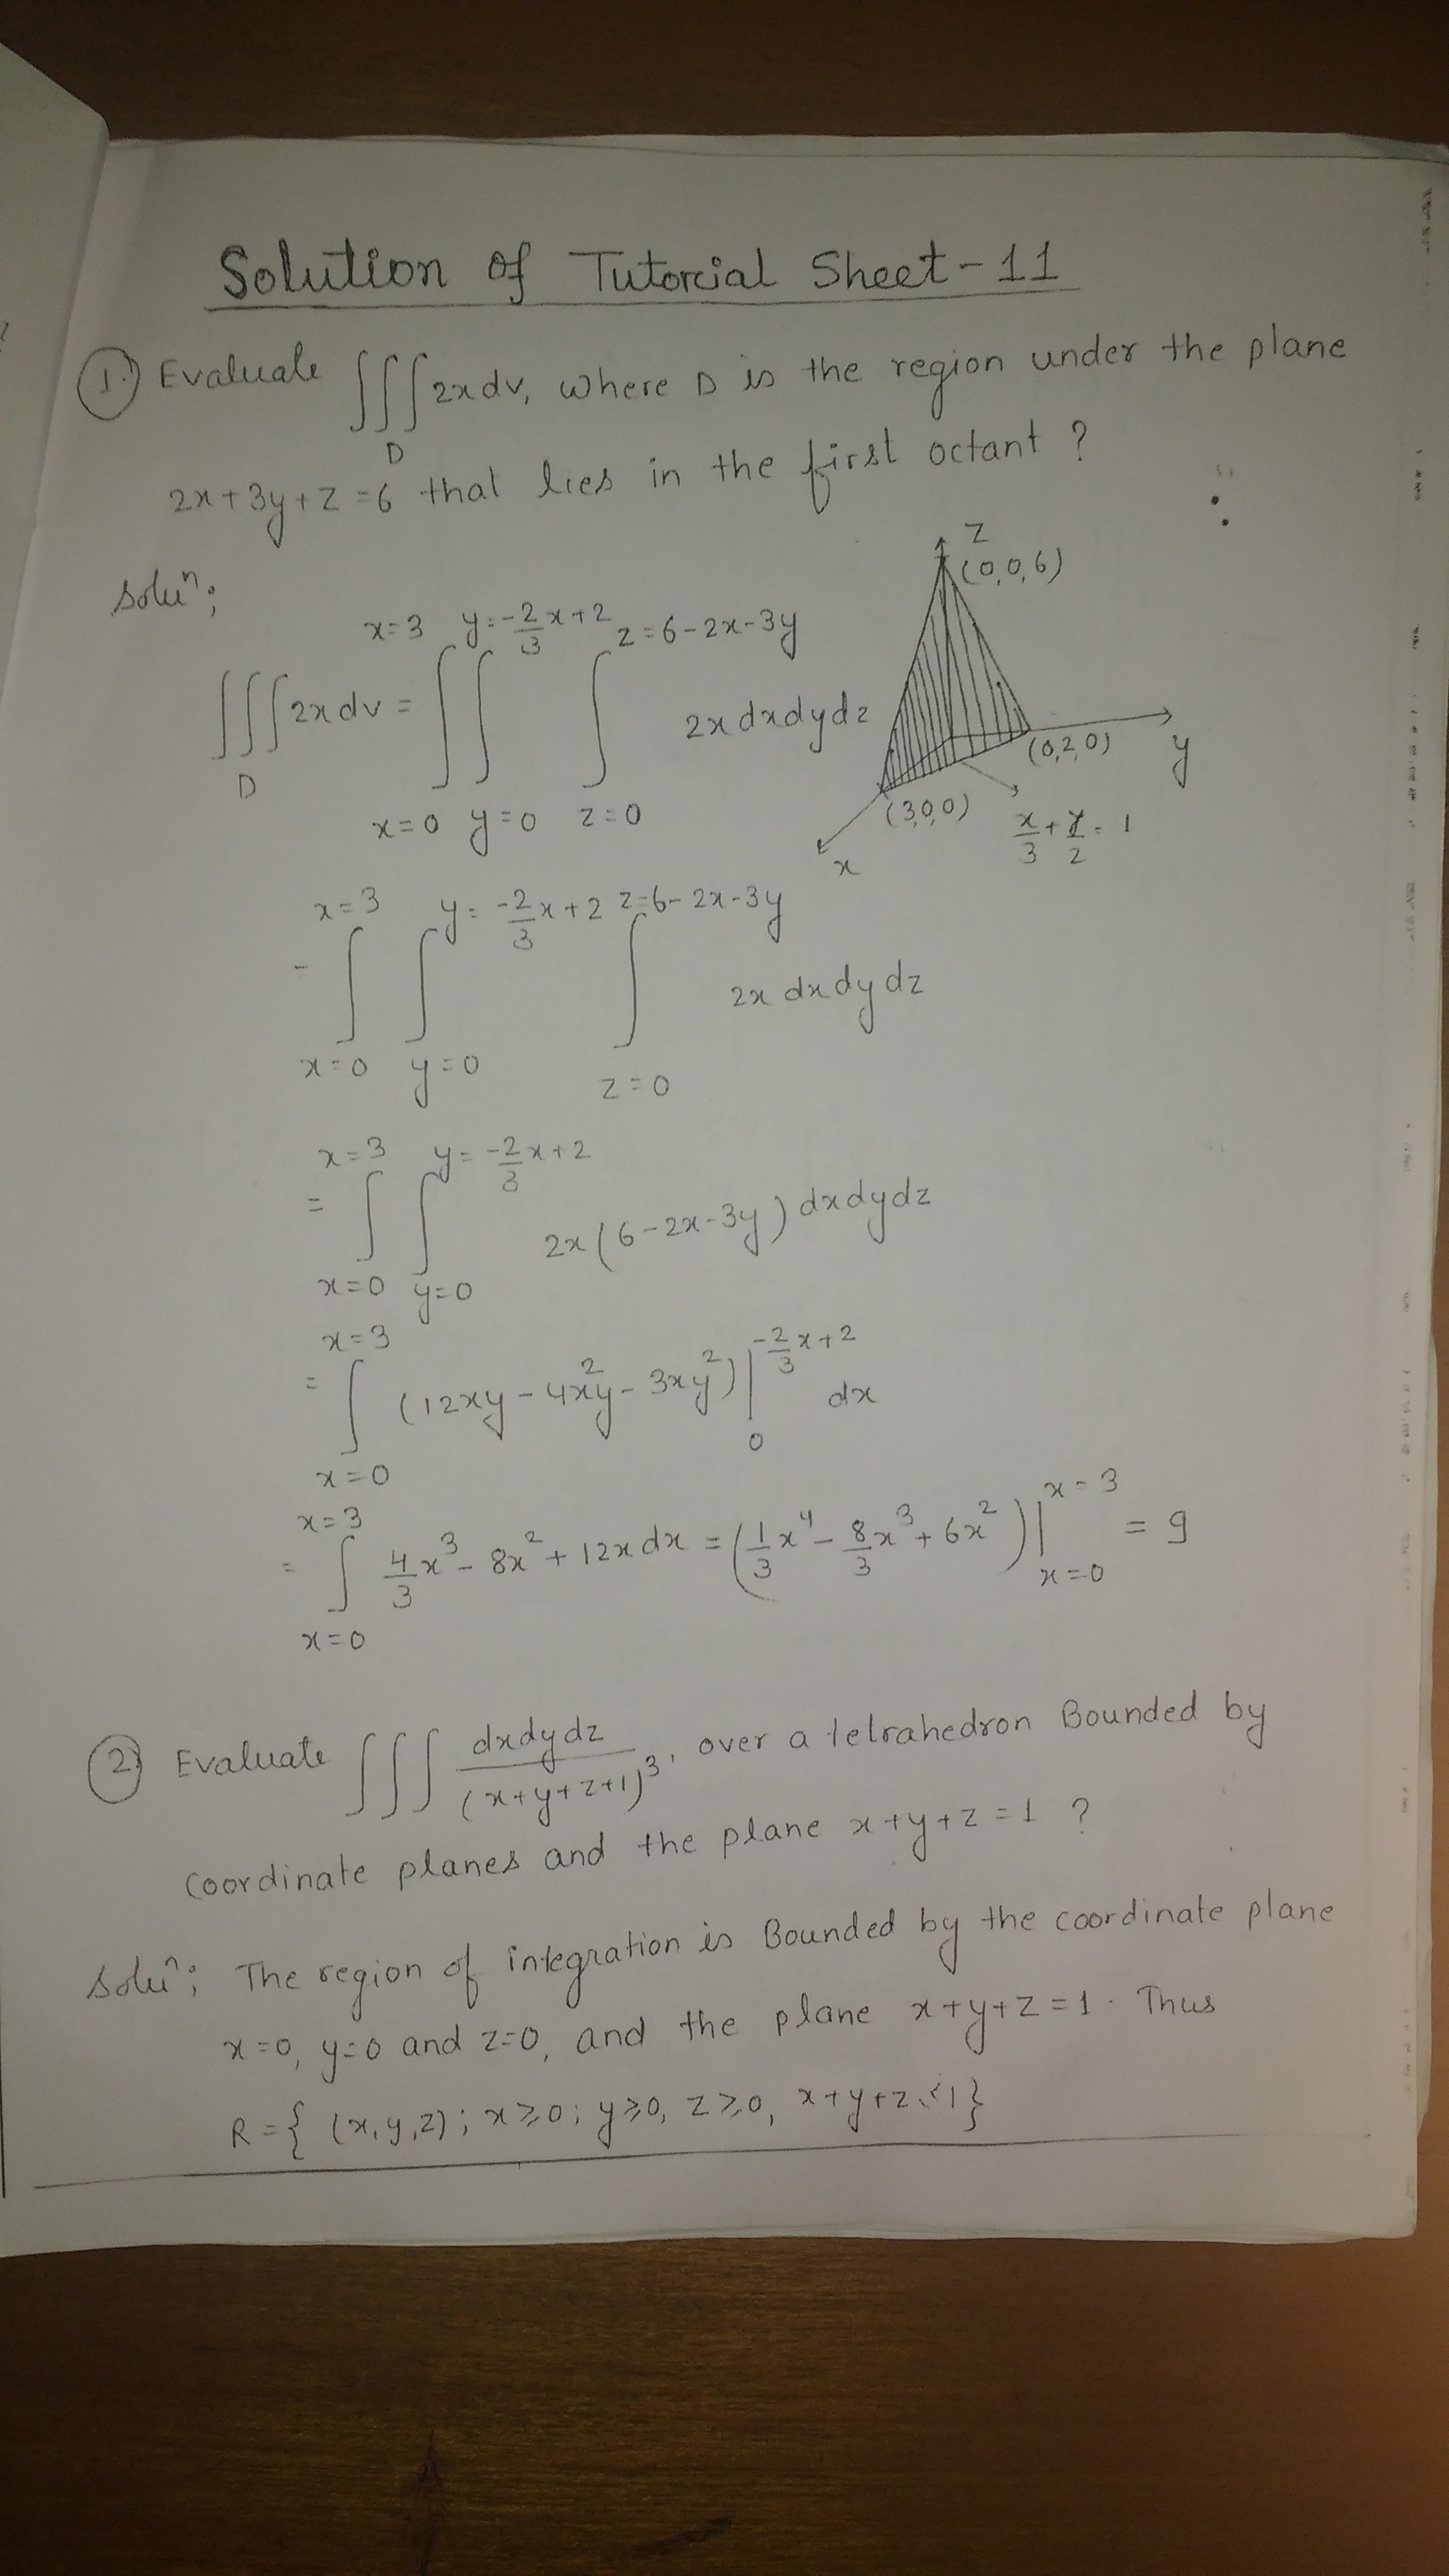 Solution of Tutorial Sheet-11
1. Evaluate ∭_D 2x dv, where D is the region under the plane
2x+3y+z=6 that lies in the first octant ?
Soluⁿ;
z
(0,0,6)
(0,2,0)
y
(3,0,0)
x/3 + y/2 = 1
x
∭_D 2x dv = ∫_{x=0}^{x=3} ∫_{y=0}^{y=-2/3 x+2} ∫_{z=0}^{z=6-2x-3y} 2x dx dy dz
= ∫_{x=0}^{x=3} ∫_{y=0}^{y=-2/3 x+2} ∫_{z=0}^{z=6-2x-3y} 2x dx dy dz
= ∫_{x=0}^{x=3} ∫_{y=0}^{y=-2/3 x+2} 2x(6-2x-3y) dx dy dz
= ∫_{x=0}^{x=3} (12xy - 4x²y - 3xy²)|_0^{-2/3 x+2} dx
= ∫_{x=0}^{x=3} 4/3 x³ - 8x² + 12x dx = (1/3 x⁴ - 8/3 x³ + 6x²)|_{x=0}^{x=3} = 9
2. Evaluate ∭ dx dy dz/(x+y+z+1)³, over a tetrahedron Bounded by
Coordinate planes and the plane x+y+z=1 ?
Soluⁿ; The region of integration is Bounded by the coordinate plane
x=0, y=0 and z=0, and the plane x+y+z=1. Thus
R={ (x,y,z); x≥0; y≥0, z≥0, x+y+z≤1}